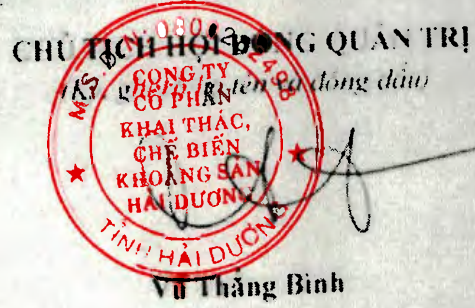 CHỦ TỊCH HỘI ĐỒNG QUẢN TRỊ
(Ký, ghi rõ họ tên và đóng dấu)
CÔNG TY
CỔ PHẦN
KHAI THÁC,
CHẾ BIẾN
KHOÁNG SẢN
HẢI DƯƠNG
TỈNH HẢI DƯƠNG
Vũ Thăng Bình